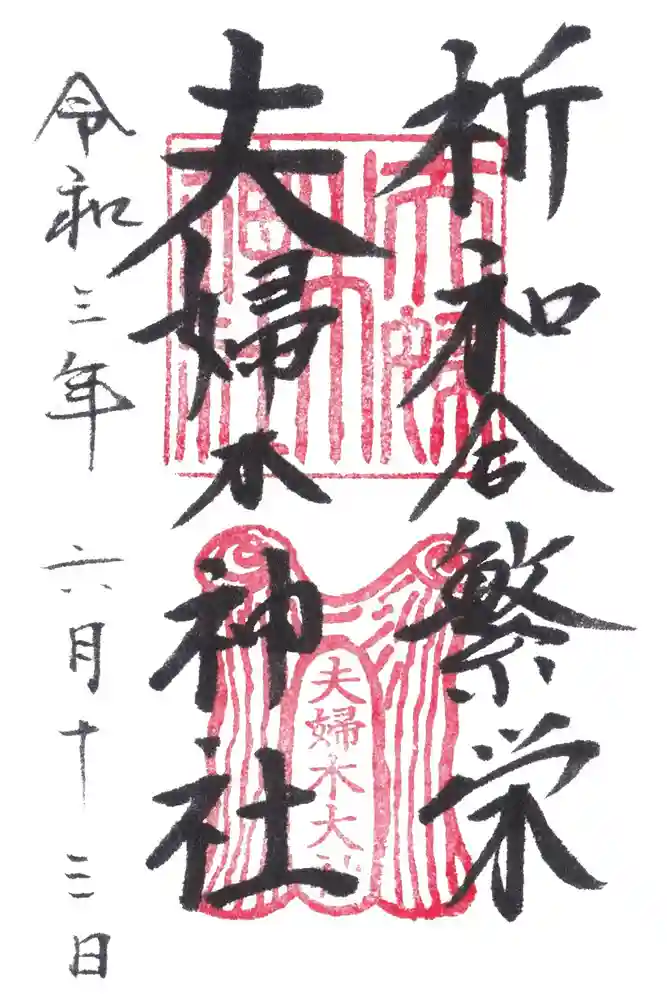 祈和合繁栄
夫婦木神社
令和三年 六月十三日
夫婦木神社
夫婦木大神